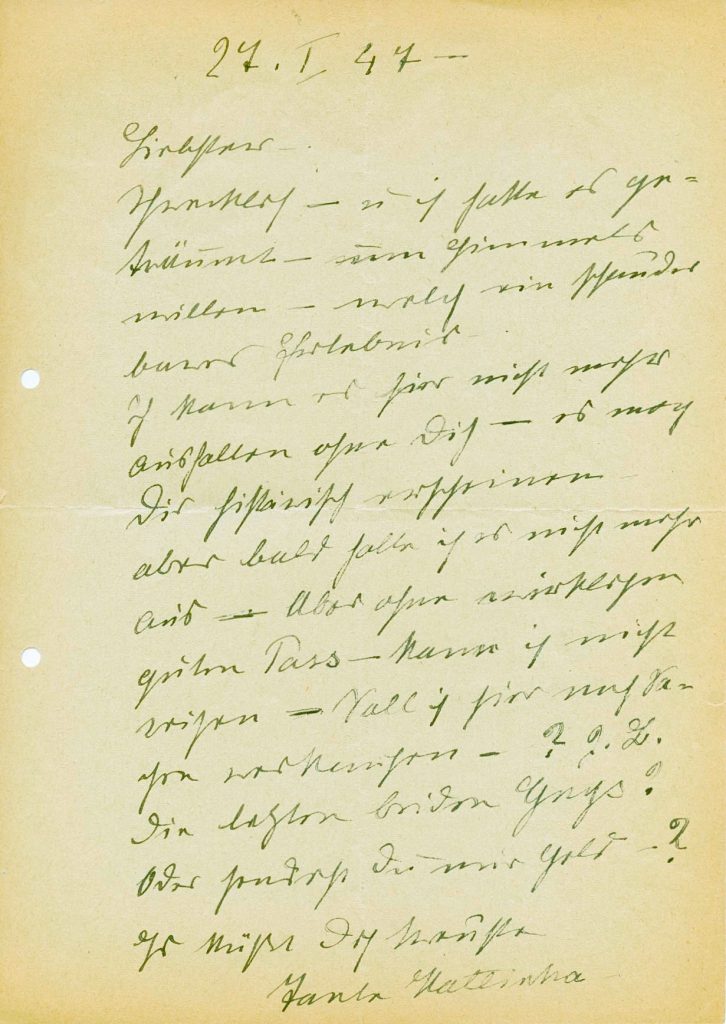 27. I 47 –
Liebster –
Schrecklich – u ich hatte es ge-
träumt – um Himmels
willen – welch ein schauder
bares Erlebnis –
Ich kann es hier nicht mehr
aushalten ohne Dich – es mag
Dir histärisch erscheinen –
aber bald halte ich es nicht mehr
aus – Aber ohne wirklichen
guten Pass – kann ich nicht
reisen – Soll ich hier noch Sa-
chen verkaufen – ? z. B.
die letzten beiden Guys?
Oder sendest Du mir Geld – ?
Es küsst Dich
Deine